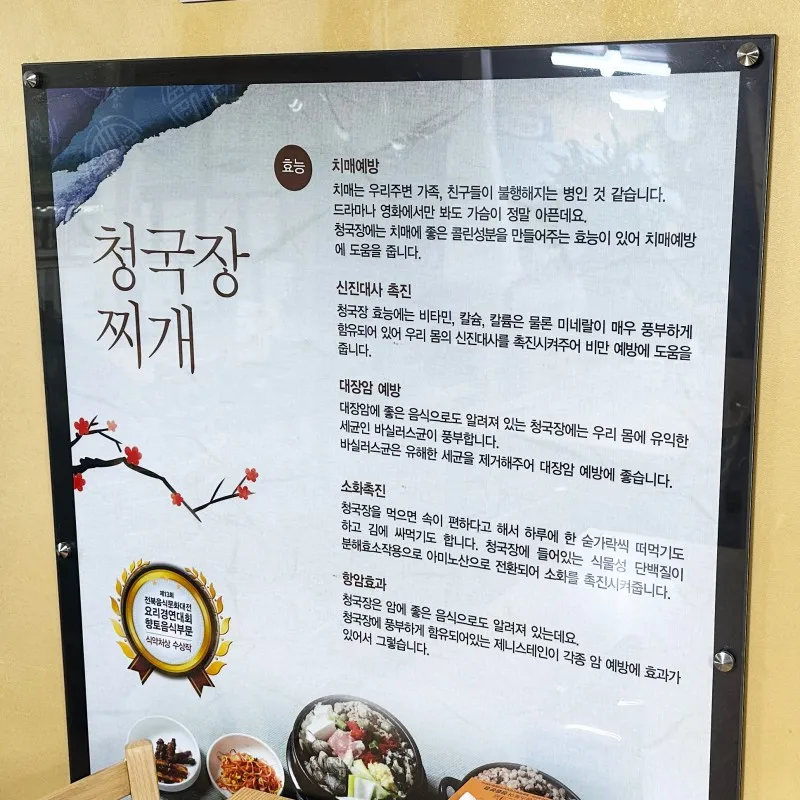 청국장
찌개
효능
치매예방
치매는 우리주변 가족, 친구들이 불행해지는 병인 것 같습니다.
드라마나 영화에서만 봐도 가슴이 정말 아픈데요.
청국장에는 치매에 좋은 콜린성분을 만들어주는 효능이 있어 치매예방
에 도움을 줍니다.
신진대사 촉진
청국장 효능에는 비타민, 칼슘, 칼륨은 물론 미네랄이 매우 풍부하게
함유되어 있어 우리 몸의 신진대사를 촉진시켜주어 비만 예방에 도움을
줍니다.
대장암 예방
대장암에 좋은 음식으로도 알려져 있는 청국장에는 우리 몸에 유익한
세균인 바실러스균이 풍부합니다.
바실러스균은 유해한 세균을 제거해주어 대장암 예방에 좋습니다.
소화촉진
청국장을 먹으면 속이 편하다고 해서 하루에 한 숟가락씩 떠먹기도
하고 김에 싸먹기도 합니다. 청국장에 들어있는 식물성 단백질이
분해효소작용으로 아미노산으로 전환되어 소화를 촉진시켜줍니다.
항암효과
청국장은 암에 좋은 음식으로도 알려져 있는데요.
청국장에 풍부하게 함유되어있는 제니스테인이 각종 암 예방에 효과가
있어서 그렇습니다.
제13회
전북음식문화대전
요리경연대회
향토음식부문
식약처상 수상작